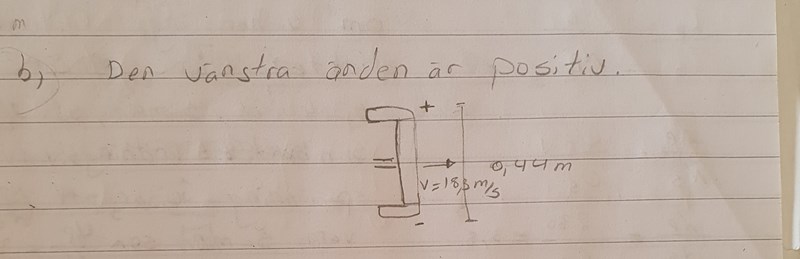 m
b) Den vänstra änden är positiv.
+
0,44 m
V = 18,3 m/s
-